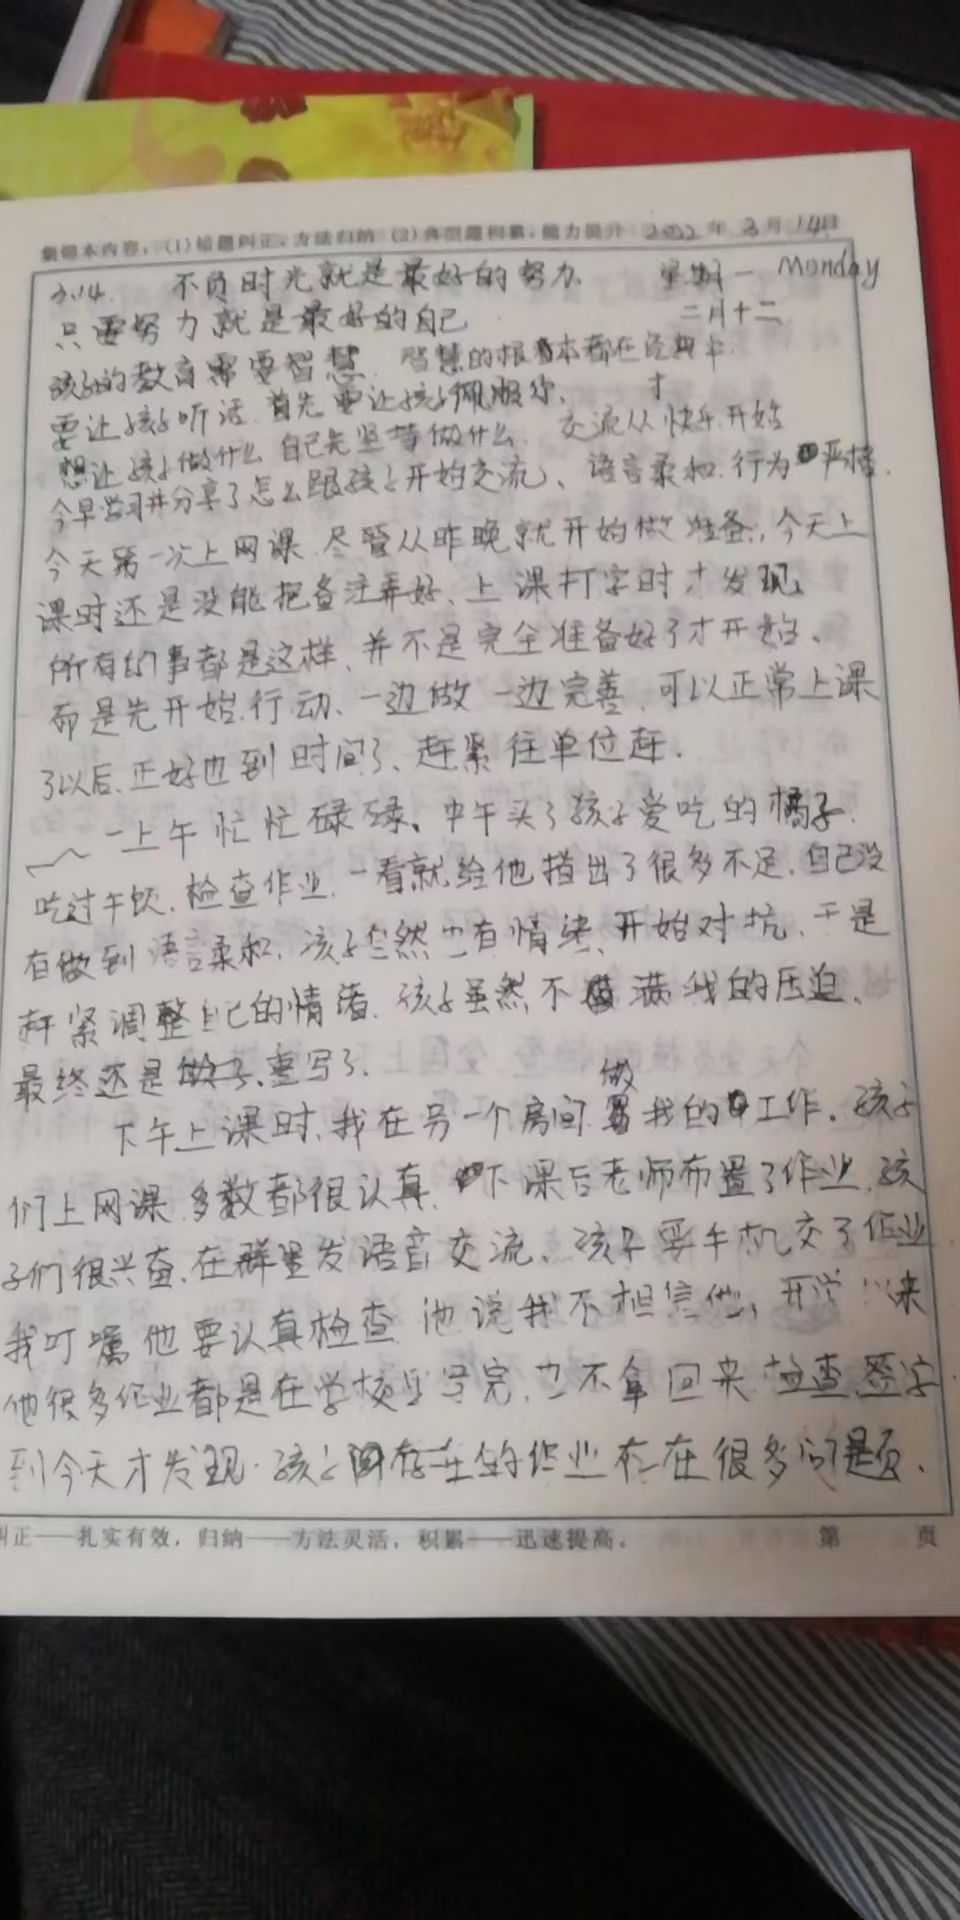 集锦本内容：(1)错题纠正，方法归纳 (2)典型题积累，能力提升 2022年3月14日
3.14. 不负时光就是最好的努力. 星期一 Monday
只要努力就是最好的自己 二月十二
孩子的教育需要智慧. 智慧的根本都在经典中.
要让孩子听话.首先要让孩子佩服你、 才
想让孩子做什么 自己先坚持做什么. 交流从快乐开始
今早学习并分享了怎么跟孩子开始交流、语言柔和.行为严格.
今天第一次上网课.尽管从昨晚就开始做准备,今天上
课时还是没能把备注弄好、上课打字时才发现.
所有的事都是这样、并不是完全准备好了才开始、
而是先开始.行动、一边做 一边完善.可以正常上课
了以后.正好也到时间了、赶紧往单位赶.
一上午忙忙碌碌、中午买了孩子爱吃的橘子.
吃过午饭.检查作业.一看就给他指出了很多不足.自己没
有做到语言柔和.孩子当然也有情绪.开始对抗.于是
赶紧调整自己的情绪.孩子虽然不满我的压迫、
最终还是 重写了.
下午上课时.我在另一个房间做我的工作.孩子
们上网课.多数都很认真.下课后老师布置了作业.孩
子们很兴奋.在群里发语音交流、孩子要手机交了作业
我叮嘱他要认真检查 他说我不相信他, 开学以来
他很多作业都是在学校 写完.也不拿回来检查签字
到今天才发现.孩子 存在的作业存在很多问题.
纠正——扎实有效，归纳——方法灵活，积累——迅速提高。 第 页